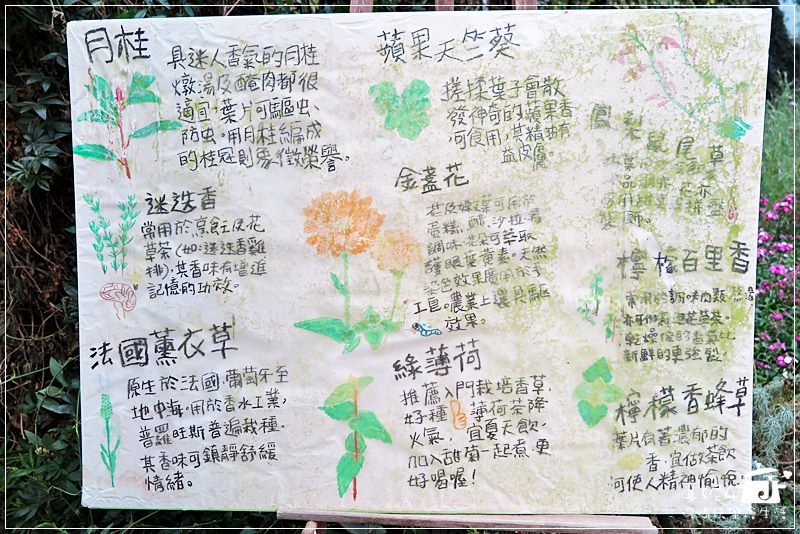 月桂
具迷人香氣的月桂
燉湯及醃肉都很
適宜，葉片可驅虫、
防虫。用月桂編成
的桂冠則象徵榮譽。
迷迭香
常用於烹飪及花
草茶(如:迷迭香雞
排)，其香味有增進
記憶的功效。
法國薰衣草
原生於法國、葡萄牙至
地中海，用於香水工業，
普羅旺斯普遍栽種，
其香味可鎮靜舒緩
情緒。
蘋果天竺葵
搓揉葉子會散
發神奇的蘋果香
可食用，其精油有
益皮膚。
金盞花
花及嫩葉可用於
蛋糕、醋、沙拉、湯
調味，花朵可萃取
護眼葉黃素。天然
染色效果廣用於手
工皂。農業上還具驅
效果。
綠薄荷
推薦入門栽培香草，
好種，薄荷茶降
火氣，宜夏天飲，
加入甜菊一起煮，更
好喝喔！
鳳梨鼠尾草
檸檬百里香
常用於調味肉類
亦可作
乾燥後的香氣比
新鮮的更強烈。
檸檬香蜂草
葉片有著濃郁的
香，宜做茶飲
可使人精神愉悅